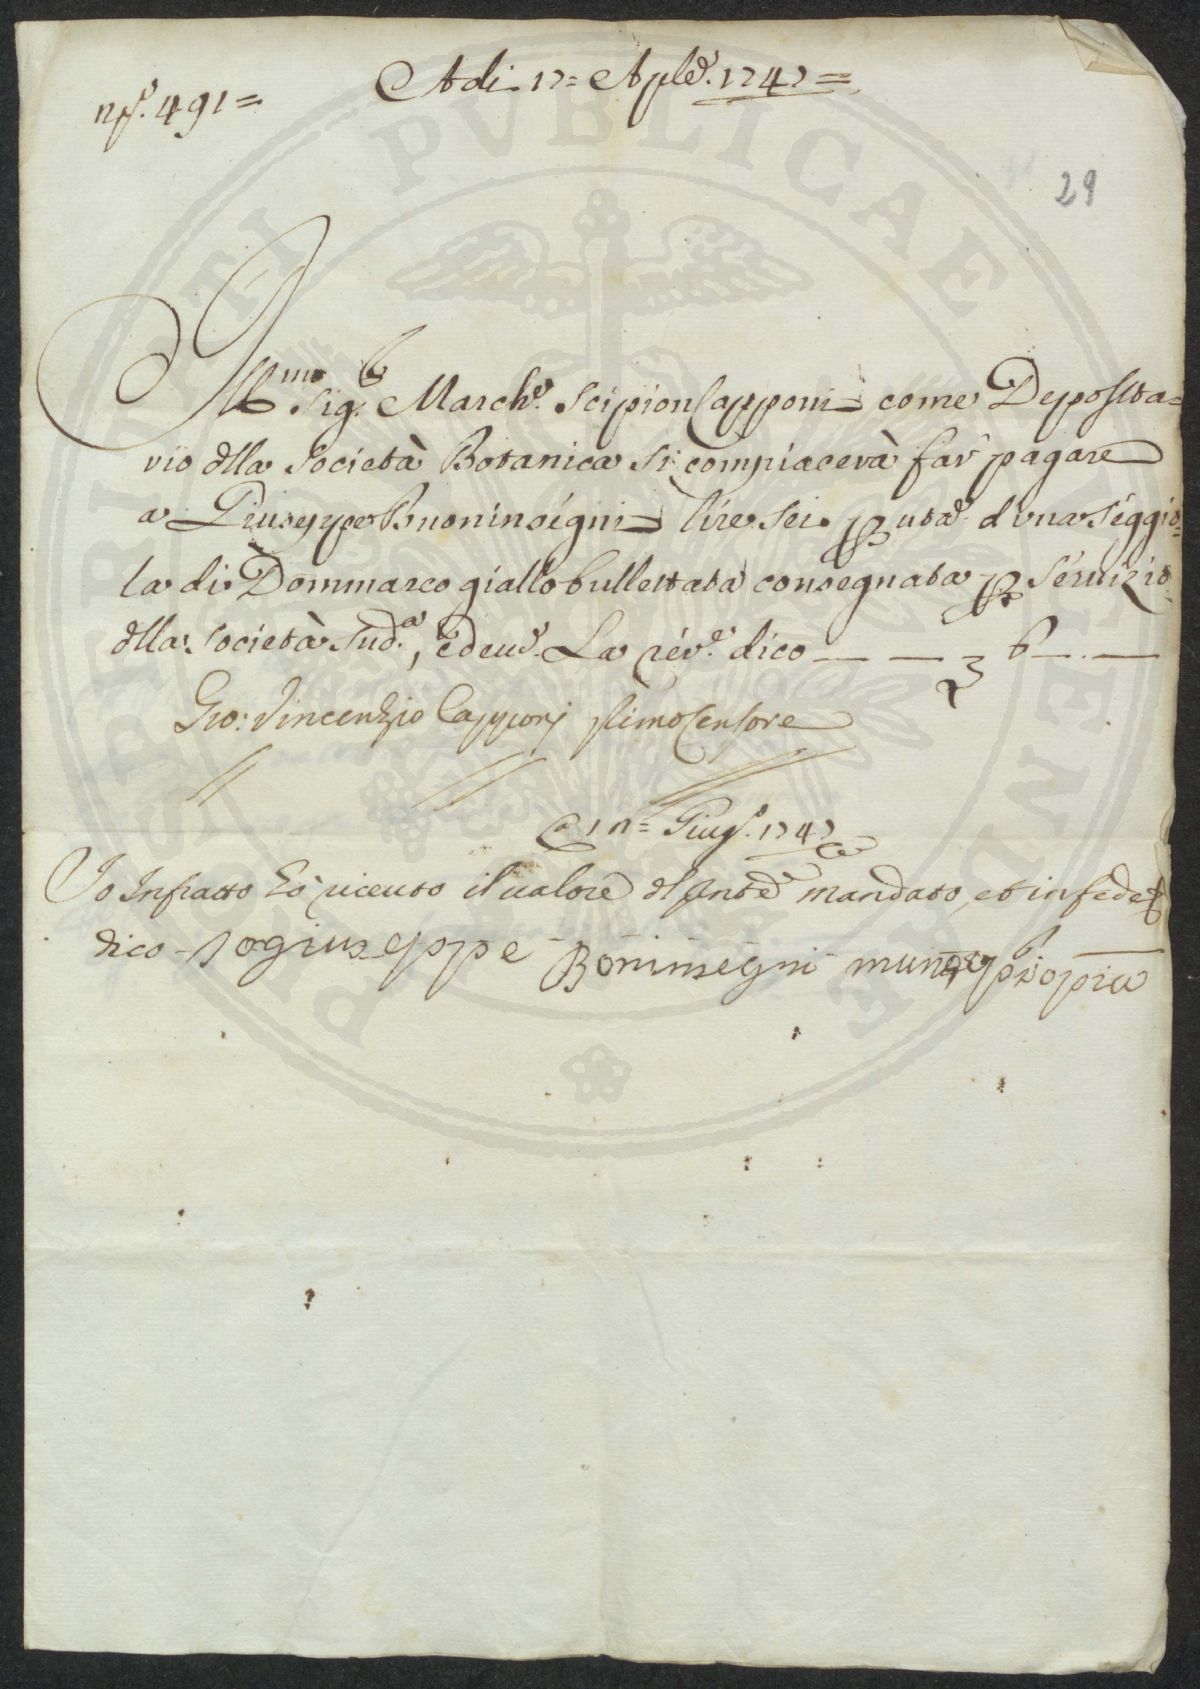 Adi 17= Aple. 1747=
nº. 491=
29
Illmo Sigr. Marche. Scipion Capponi come Deposita=
rio dlla Società Botanica Si compiacerà far pagare
a Giuseppe Buoninsegni lire sei p uta d una seggio=
la di Dommasco giallo bullettata consegnata p seruizio
dlla Società Sud.a, e deue. La river.e dico — — £ 6 — —
Gio: Vincenzio Capponj Pimo Censore
A 1 Giug.o 1747
Io Infratto ho riceuto il ualore dl antedo mandato, et in fede
dico - Io giuseppe Boninsegni mano propria
PVBLICAE